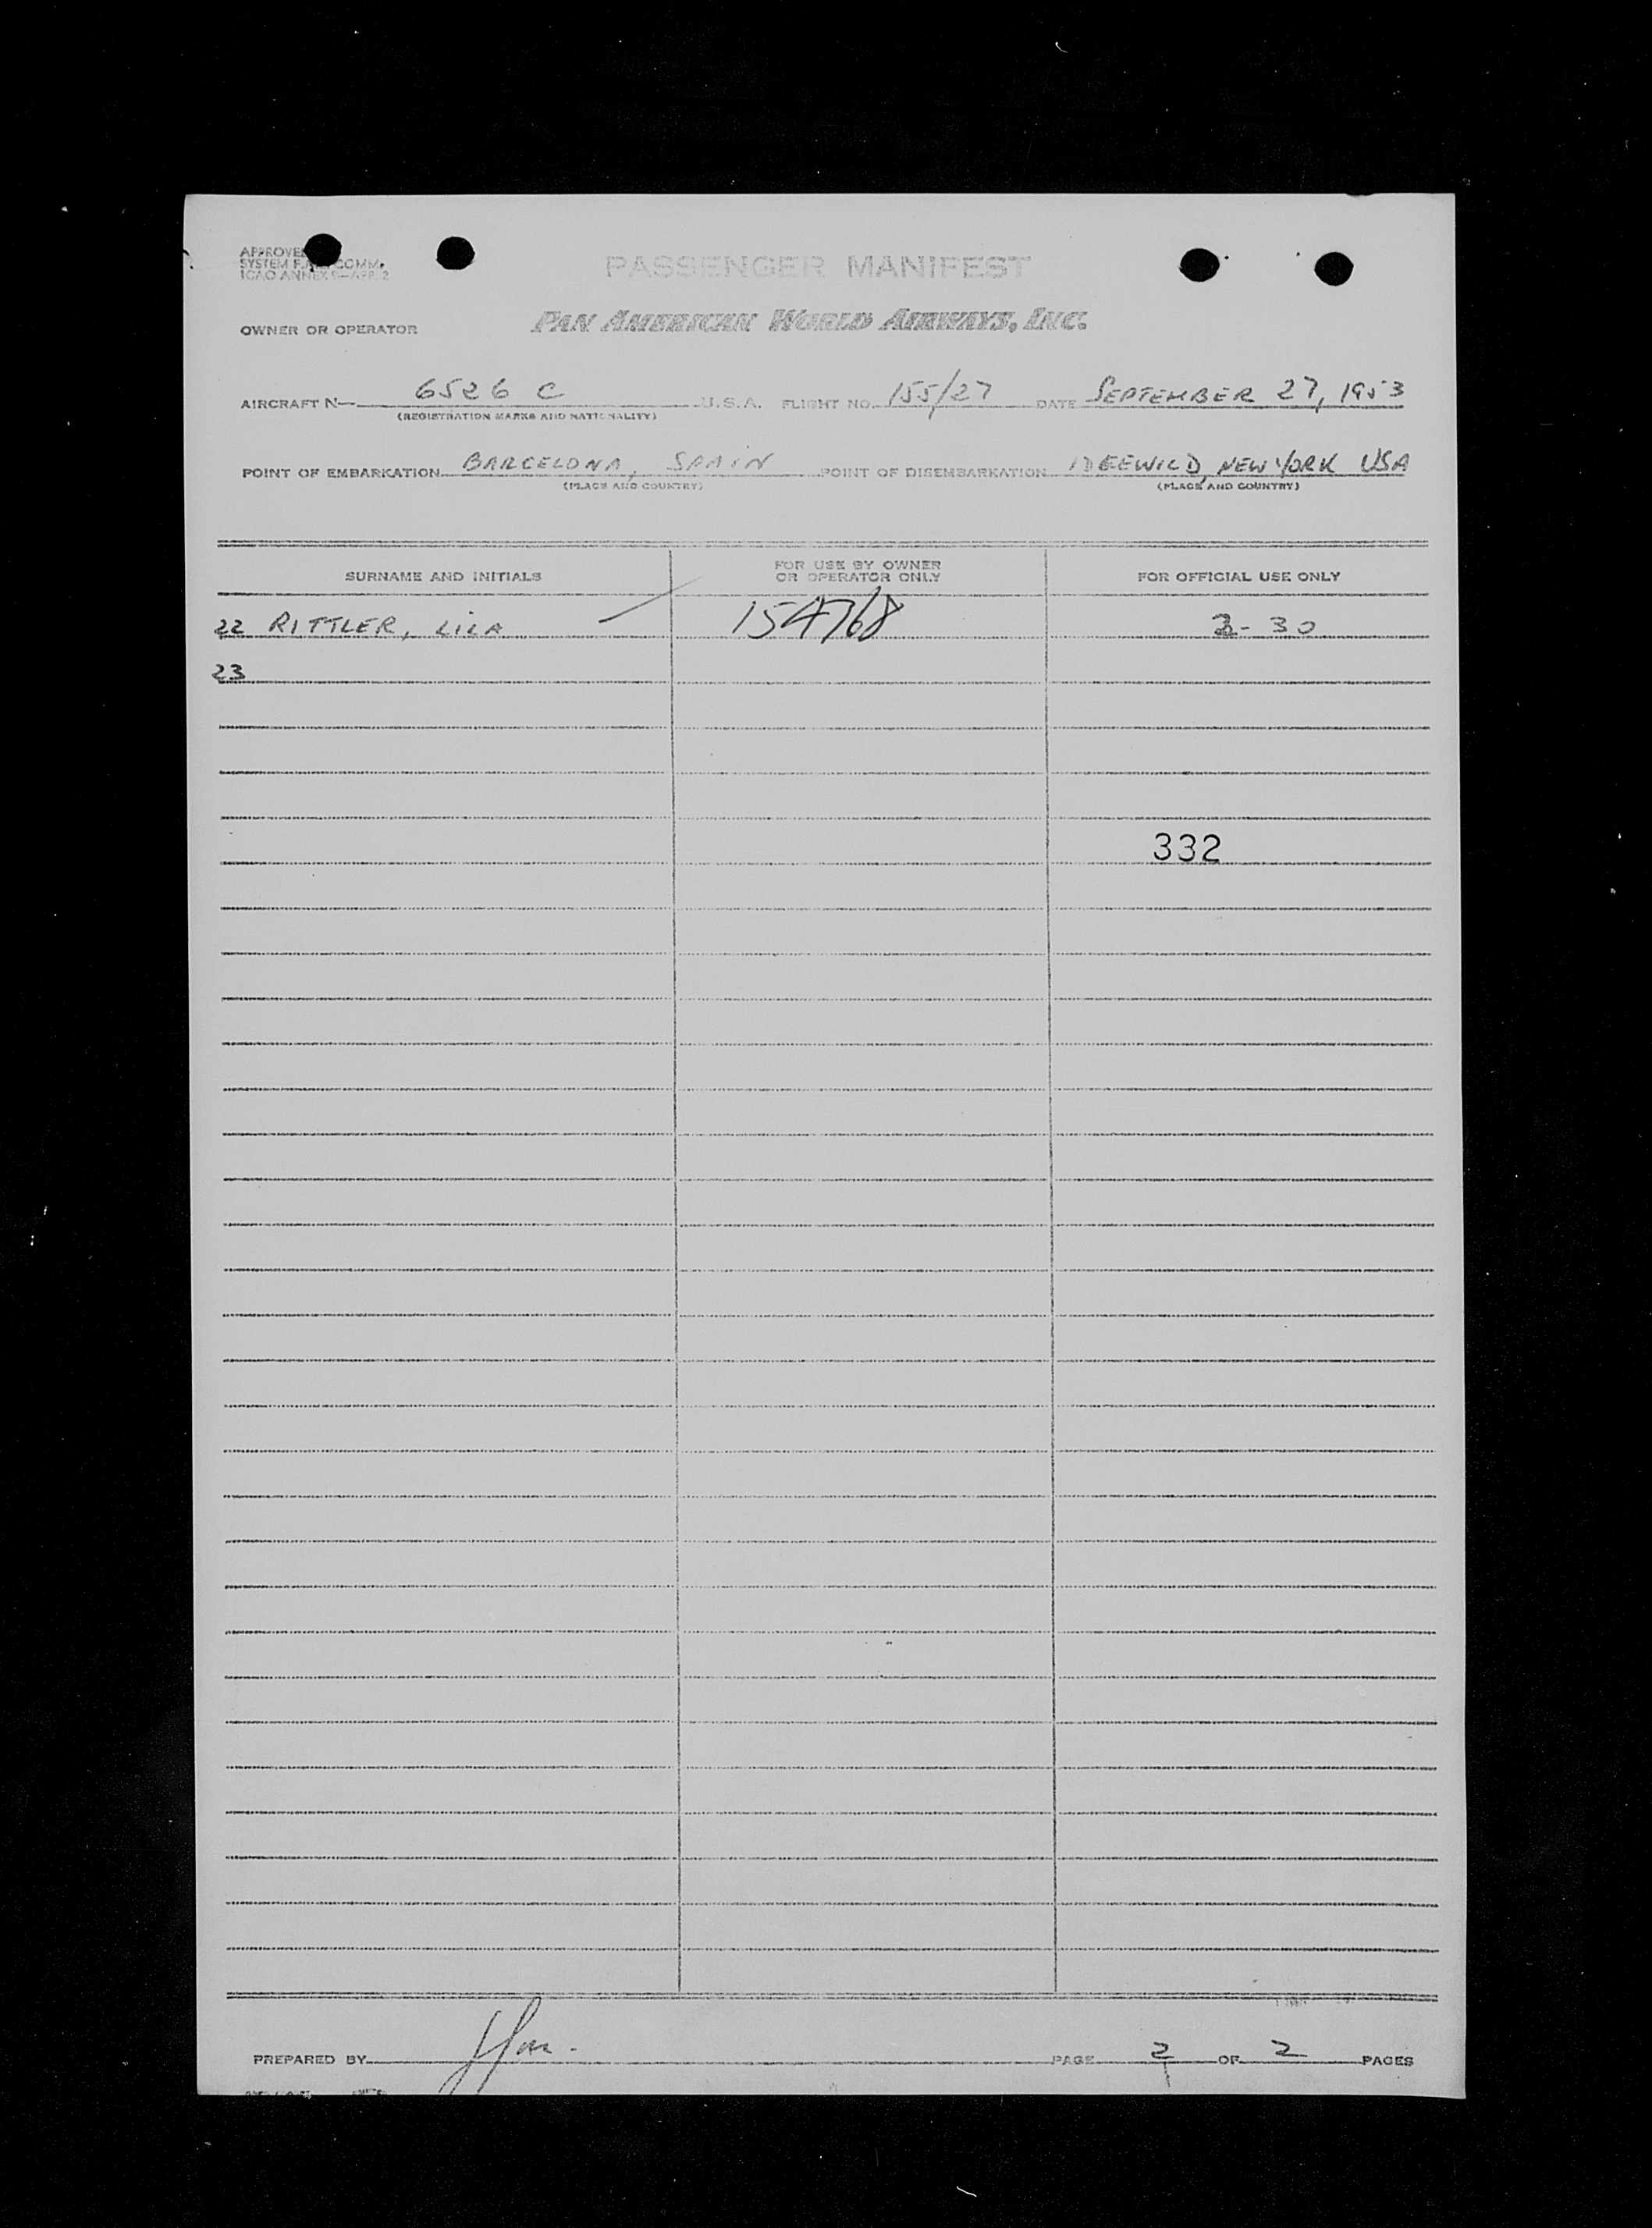 PASSENGER MANIFEST
SYSTEM
OWNER OR OPERATOR PAN AMERICAN WORLD AIRWAYS, INC.
AIRCRAFT N— 6526 C U.S.A. FLIGHT NO. 155/27 DATE SEPTEMBER 27, 1953
(REGISTRATION MARKS AND NATIONALITY)
POINT OF EMBARKATION BARCELONA, SPAIN POINT OF DISEMBARKATION IDEEWILD, NEW YORK USA
(PLACE AND COUNTRY) (PLACE AND COUNTRY)
SURNAME AND INITIALS
FOR USE BY OWNER
OR OPERATOR ONLY
FOR OFFICIAL USE ONLY
22 RITTLER, LILA 154768 2-30
23
332
PREPARED BY PAGE 2 OF 2 PAGES